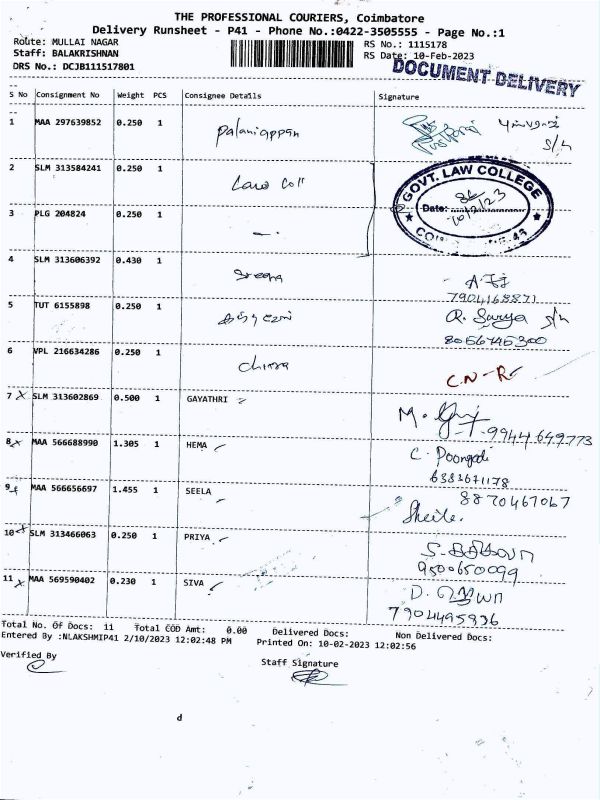 THE PROFESSIONAL COURIERS, Coimbatore
Delivery Runsheet - P41 - Phone No.:0422-3505555 - Page No.:1
Route: MULLAI NAGAR RS No.: 1115178
Staff: BALAKRISHNAN RS Date: 10-Feb-2023
DRS No.: DCJB111517801 DOCUMENT DELIVERY
S No Consignment No Weight PCS Consignee Details Signature
1 MAA 297639852 0.250 1 Palaniappan S/n
2 SLM 313584241 0.250 1 Law Coll
GOVT. LAW COLLEGE
Date: 10/2/23
3 PLG 204824 0.250 1
4 SLM 313606392 0.430 1 Sreena
7904168871
5 TUT 6155898 0.250 1 R. Surya S/n
8056745300
6 VPL 216634286 0.250 1 Chitra C.N-R
7 SLM 313602869 0.500 1 GAYATHRI M. 9944649773
8 MAA 566688990 1.305 1 HEMA C. Poongodi
6381671178
9 MAA 566656697 1.455 1 SEELA 8870467067
Sheila.
10 SLM 313466063 0.250 1 PRIYA
9500650099
11 MAA 569590402 0.230 1 SIVA
7904495836
Total No. Of Docs: 11 Total COD Amt: 0.00 Delivered Docs: Non Delivered Docs:
Entered By :NLAKSHMIP41 2/10/2023 12:02:48 PM Printed On: 10-02-2023 12:02:56
Verified By Staff Signature
d